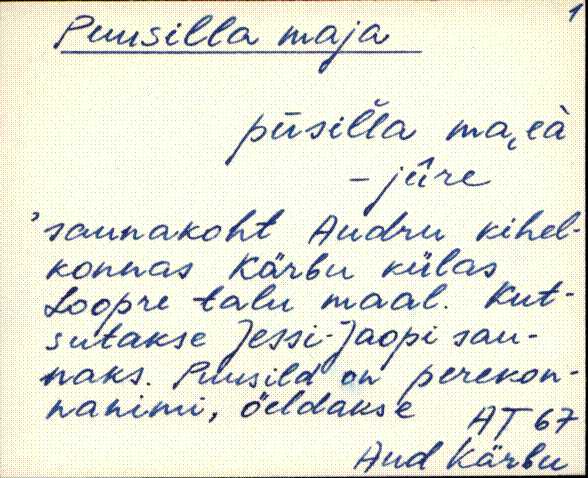 1
Puusilla maja
pūsiľľa ma,eà
- jûre
'saunakoht Audru kihel-
konnas Kärbu külas
Loopre talu maal. Kut-
sutakse Jessi-Jaopi sau-
naks. Puusild on perekon-
nanimi, öeldakse AT 67
Aud Kärbu